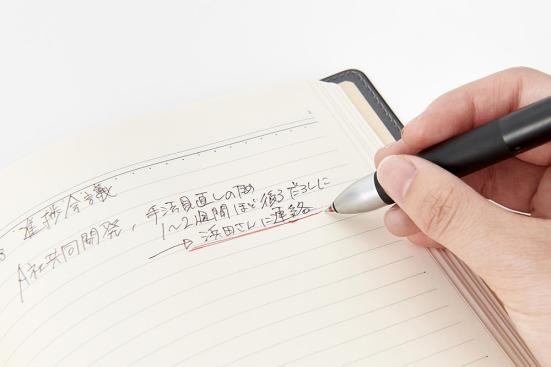 進捗会議
A社共同開発、手法見直しのため
1~2週間ほど後ろだおしに
→ 浜田さんに連絡